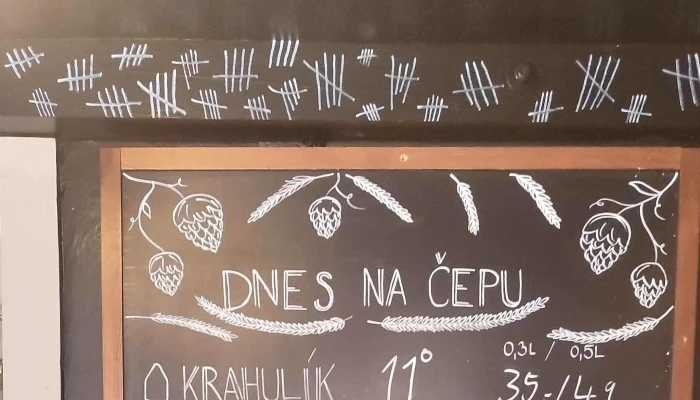 DNES NA ČEPU
0,3L / 0,5L
KRAHULÍK 11° 35,-/49